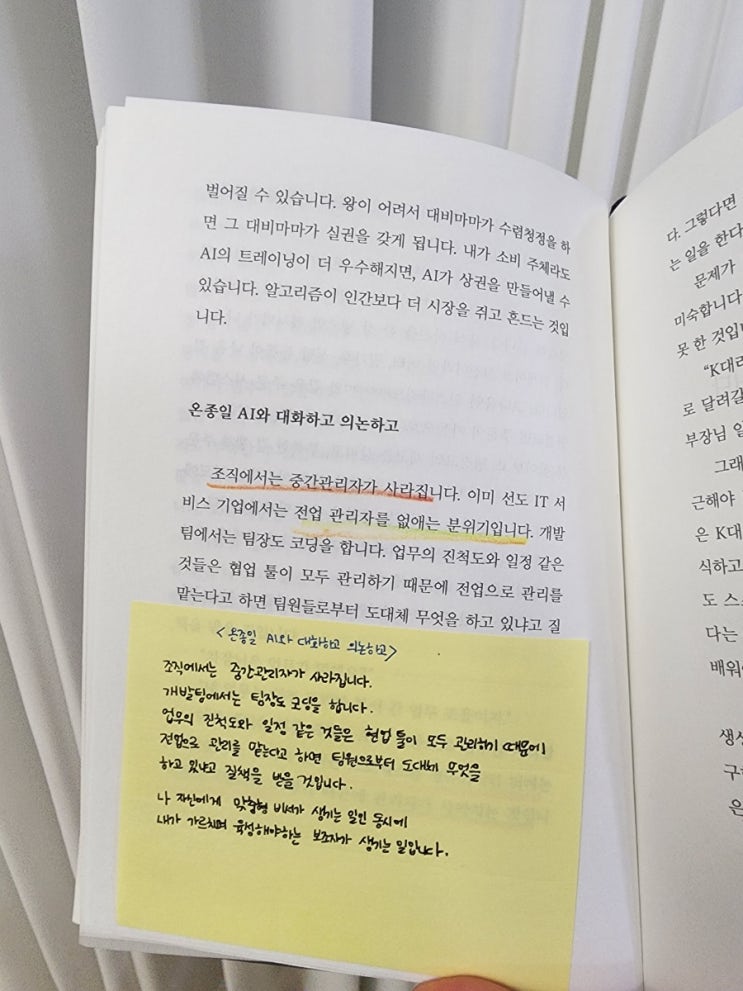 벌어질 수 있습니다. 왕이 어려서 대비마마가 수렴청정을 하
면 그 대비마마가 실권을 갖게 됩니다. 내가 소비 주체라도
AI의 트레이닝이 더 우수해지면, AI가 상권을 만들어낼 수
있습니다. 알고리즘이 인간보다 더 시장을 쥐고 흔드는 것입
니다.
온종일 AI와 대화하고 의논하고
조직에서는 중간관리자가 사라집니다. 이미 선도 IT 서
비스 기업에서는 전업 관리자를 없애는 분위기입니다. 개발
팀에서는 팀장도 코딩을 합니다. 업무의 진척도와 일정 같은
것들은 협업 툴이 모두 관리하기 때문에 전업으로 관리를
맡는다고 하면 팀원들로부터 도대체 무엇을 하고 있냐고 질
<온종일 AI와 대화하고 의논하고>
조직에서는 중간관리자가 사라집니다.
개발팀에서는 팀장도 코딩을 합니다.
업무의 진척도와 일정 같은 것들은 현업 툴이 모두 관리하기 때문에
전업으로 관리를 맡는다고 하면 팀원으로부터 도대체 무엇을
하고 있냐고 질책을 받을 것입니다.
나 자신에게 맞춤형 비서가 생기는 일인 동시에
내가 가르치며 육성해야하는 보조자가 생기는 일입니다.
다. 그렇다면
는 일을 한다
문제가
미숙합니다
못 한 것입니
"K대리
로 달려갈
부장님 일
그래
근해야
은 K대
식하고
도 스
다는
배워
생성
구하
은